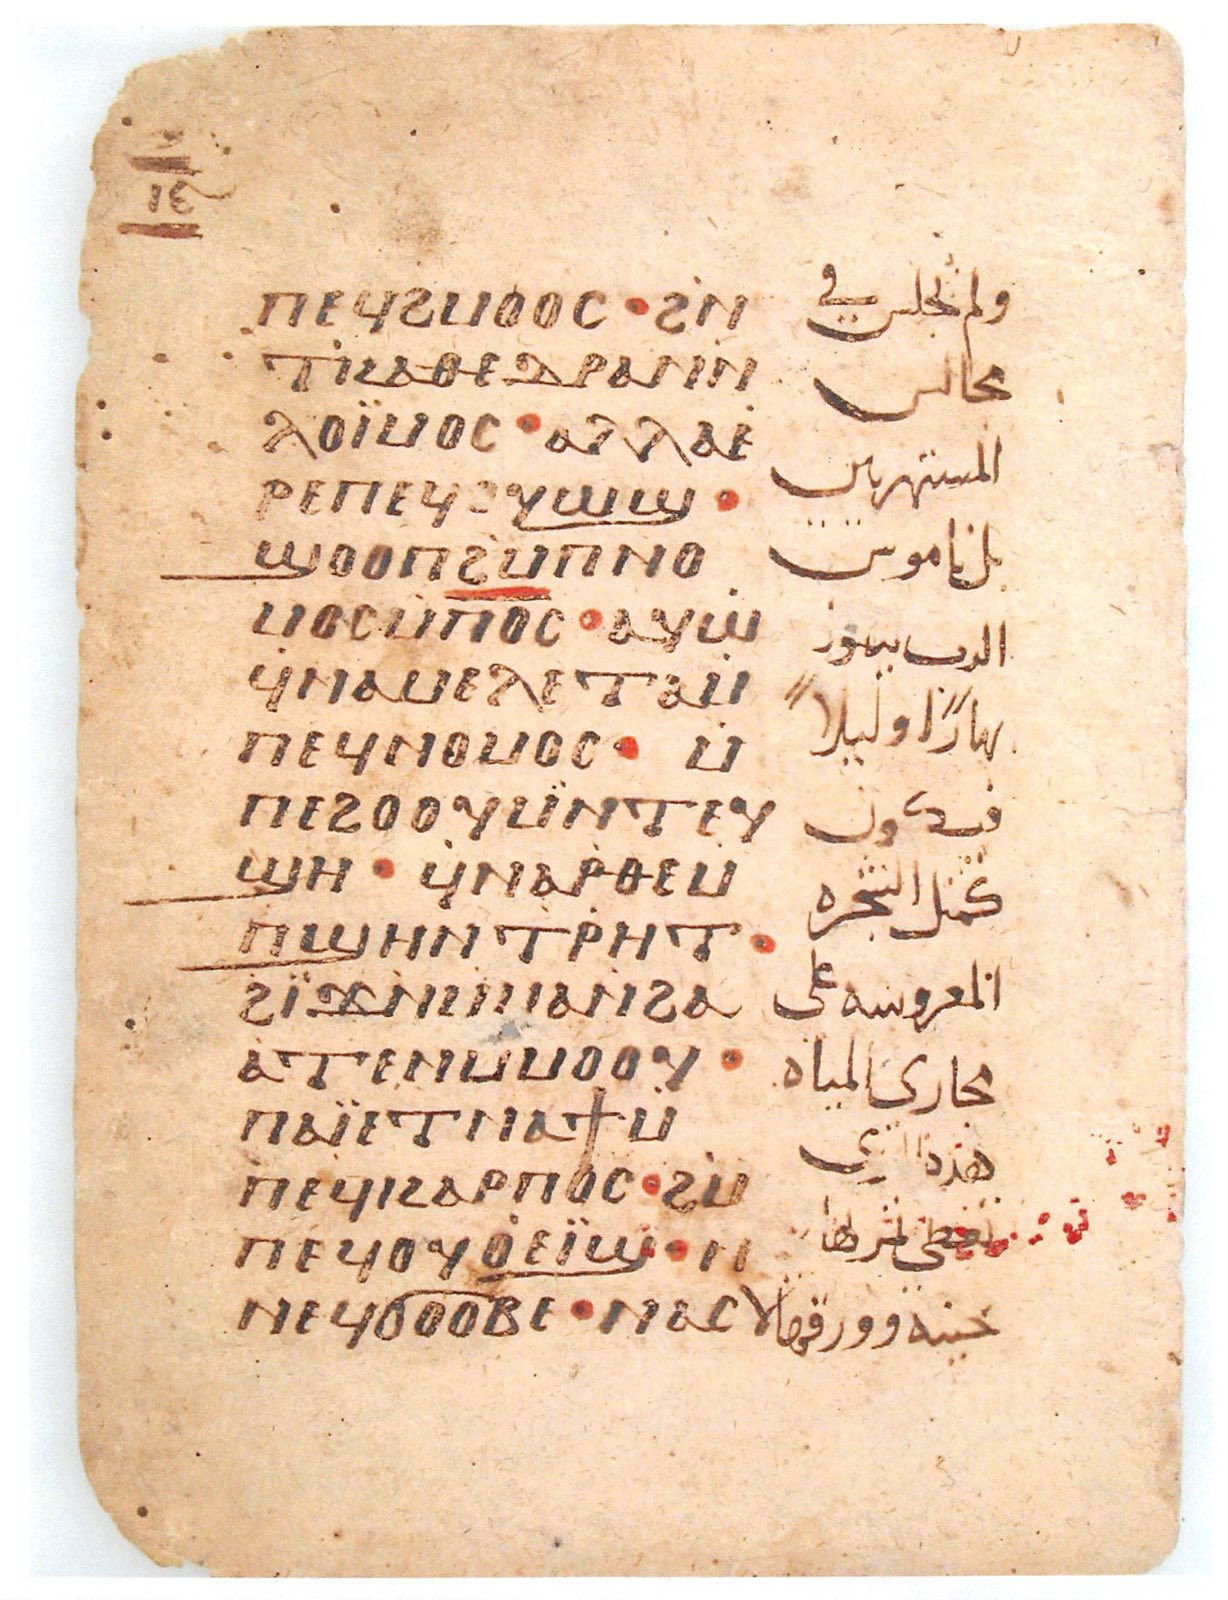 ⲓⲉ
ⲡⲉϥϩⲙⲟⲟⲥ • ϩⲛ̀
ⲧⲕⲁⲑⲉⲇⲣⲁⲛ̀ⲛ̀
ⲗⲟⲓ̈ⲙⲟⲥ • ⲁⲗⲗⲁⲉ̀
ⲣⲉⲡⲉϥⲟⲩⲱϣ •
ϣⲟⲟⲡϩⲙ̀ⲡⲛⲟ
ⲙⲟⲥⲙ̀ⲡⲟⲥ • ⲁⲩⲱ
ϥ̀ⲛⲁⲙⲉⲗⲉⲧⲁⲙ̀
ⲡⲉϥⲛⲟⲙⲟⲥ • ⲙ̀
ⲡⲉϩⲟⲟⲩⲙⲛ̀ⲧⲉⲩ
ϣⲏ • ϥ̀ⲛⲁⲣ̀ⲑⲉⲙ̀
ⲡϣⲏⲛ ⲧⲣ̀ⲏⲧ •
ϩⲓ̈ϫⲛ̀ⲙ̀ⲙⲁⲛ̀ϩⲁ
ⲁⲧⲉⲛⲙⲙⲟⲟⲩ •
ⲡⲁⲓ̈ⲉⲧⲛⲁϯⲙ̀
ⲡⲉϥⲕⲁⲣⲡⲟⲥ • ϩⲙ̀
ⲡⲉϥⲟⲩⲟ̀ⲉⲓ̈ϣ • ⲛ̀
ⲛⲉϥϭⲟⲟⲃⲉ • ⲛⲁⲥ
ولم يجلس في
مجالس
المستهزيين
بل ناموس
الرب يهوز
نهارًا وليلاً
فيكون
كمثل الشجره
المغروسه على
مجاري المياه
هذه التي
تعطي ثمرتها
حينه وورقها لا